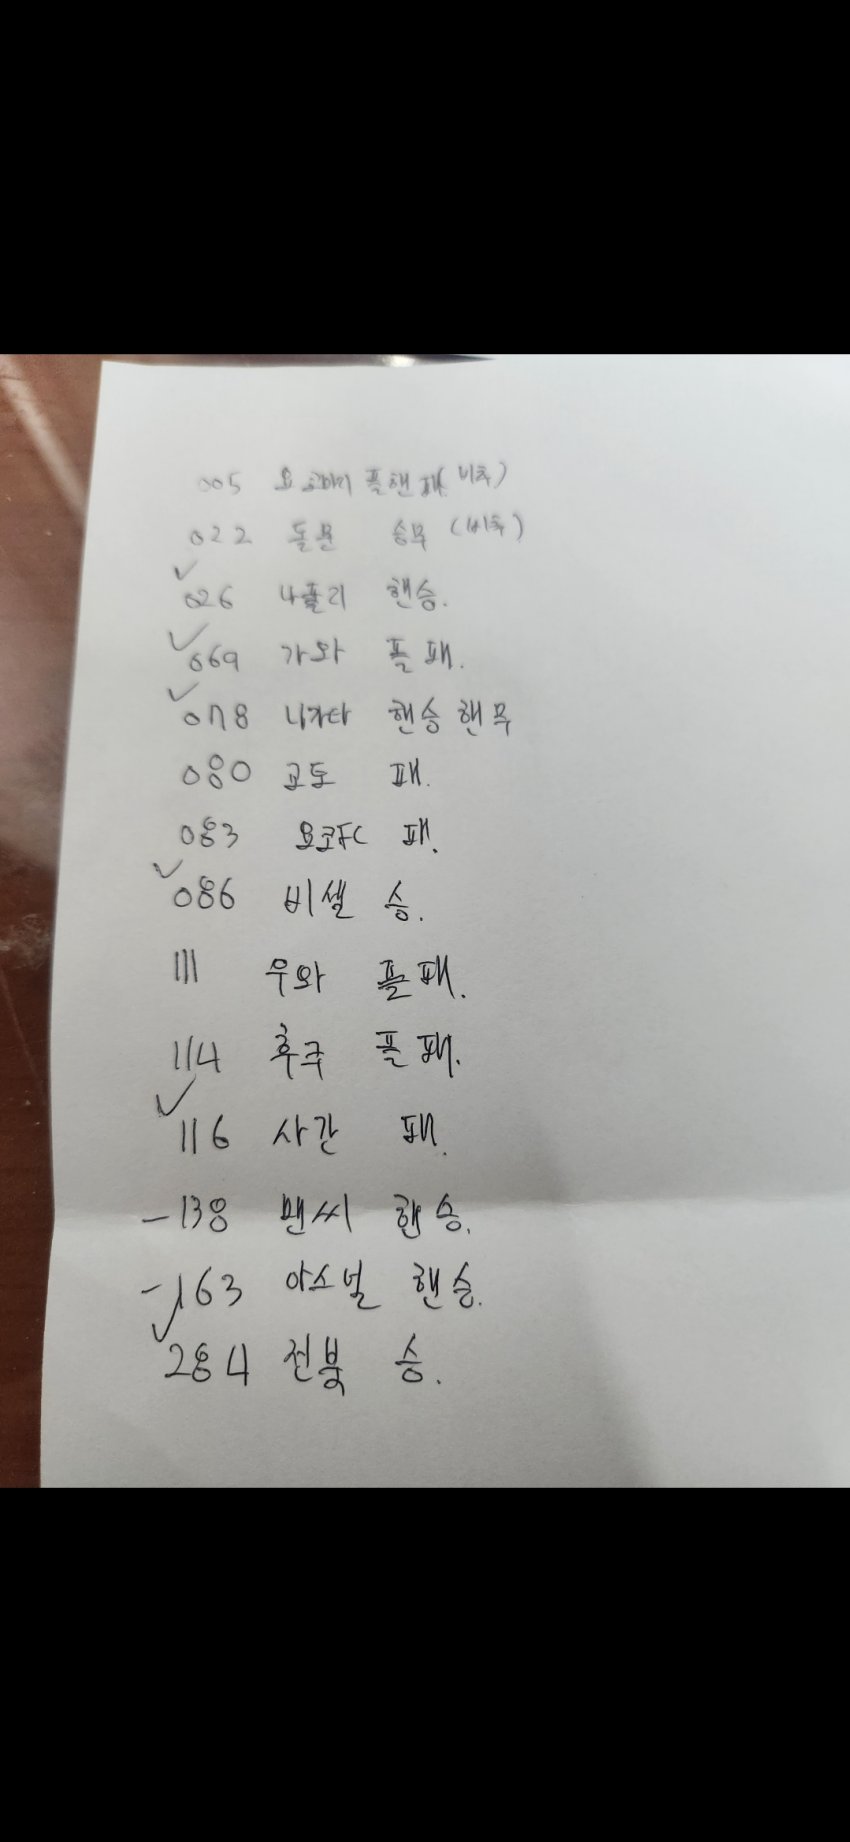 005 요코마리 플핸패 (비추)
022 돌문 승무 (비추)
✓ 026 나폴리 핸승.
✓ 069 가와 플패.
✓ 078 니가타 핸승핸무
080 교토 패.
083 요코FC 패.
✓ 086 비셀 승.
111 우와 플패.
114 후쿠 플패.
✓ 116 사간 패.
-138 맨씨 핸승.
-163 아스널 핸승.
✓ 284 전북 승.